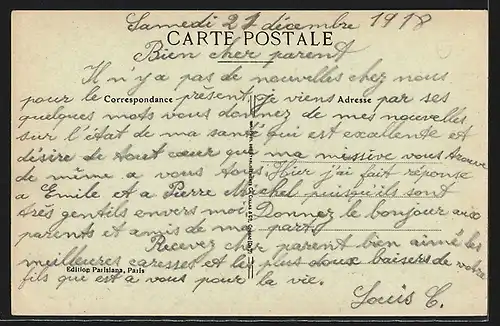 Samedi 21 décembre 1918
CARTE POSTALE
Bien cher parent
Il n'y a pas de nouvelles chez nous
pour le présent, je viens par ses
Correspondance
Adresse
quelques mots vous donnez de mes nouvelles
sur l'état de ma santé qui est excellente et
désire de tout cœur que ma messive vous trouve
de même a vous tous. Hier j'ai fait réponse
a Emile et a Pierre Michel, puisqu'ils sont
très gentils envers moi. Donnez le bonjour aux
parents et amis de ma part.
Recevez cher parent bien aimé les
meilleures caresses et les plus doux baisers de votre
Edition Parisiana, Paris
fils qui est a vous pour la vie.
Louis C.